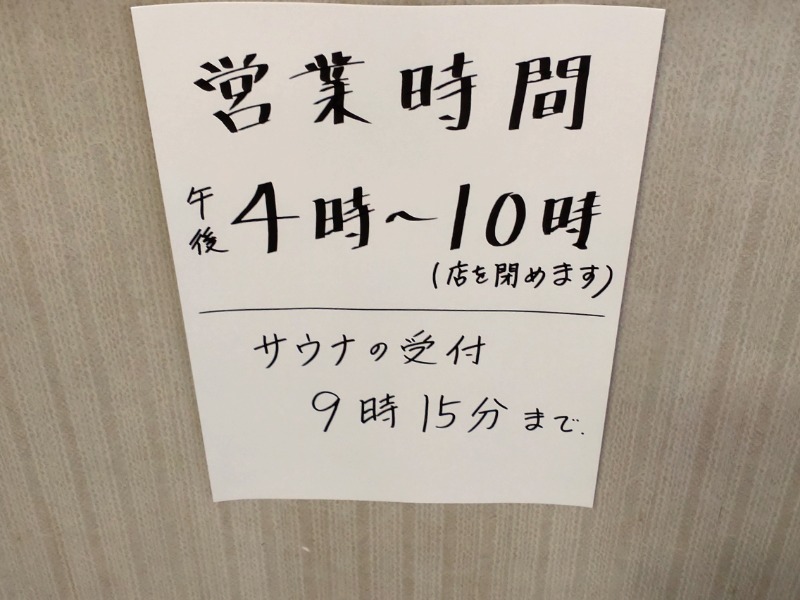 営業時間
午後4時~10時
(店を閉めます)
サウナの受付
9時15分まで.